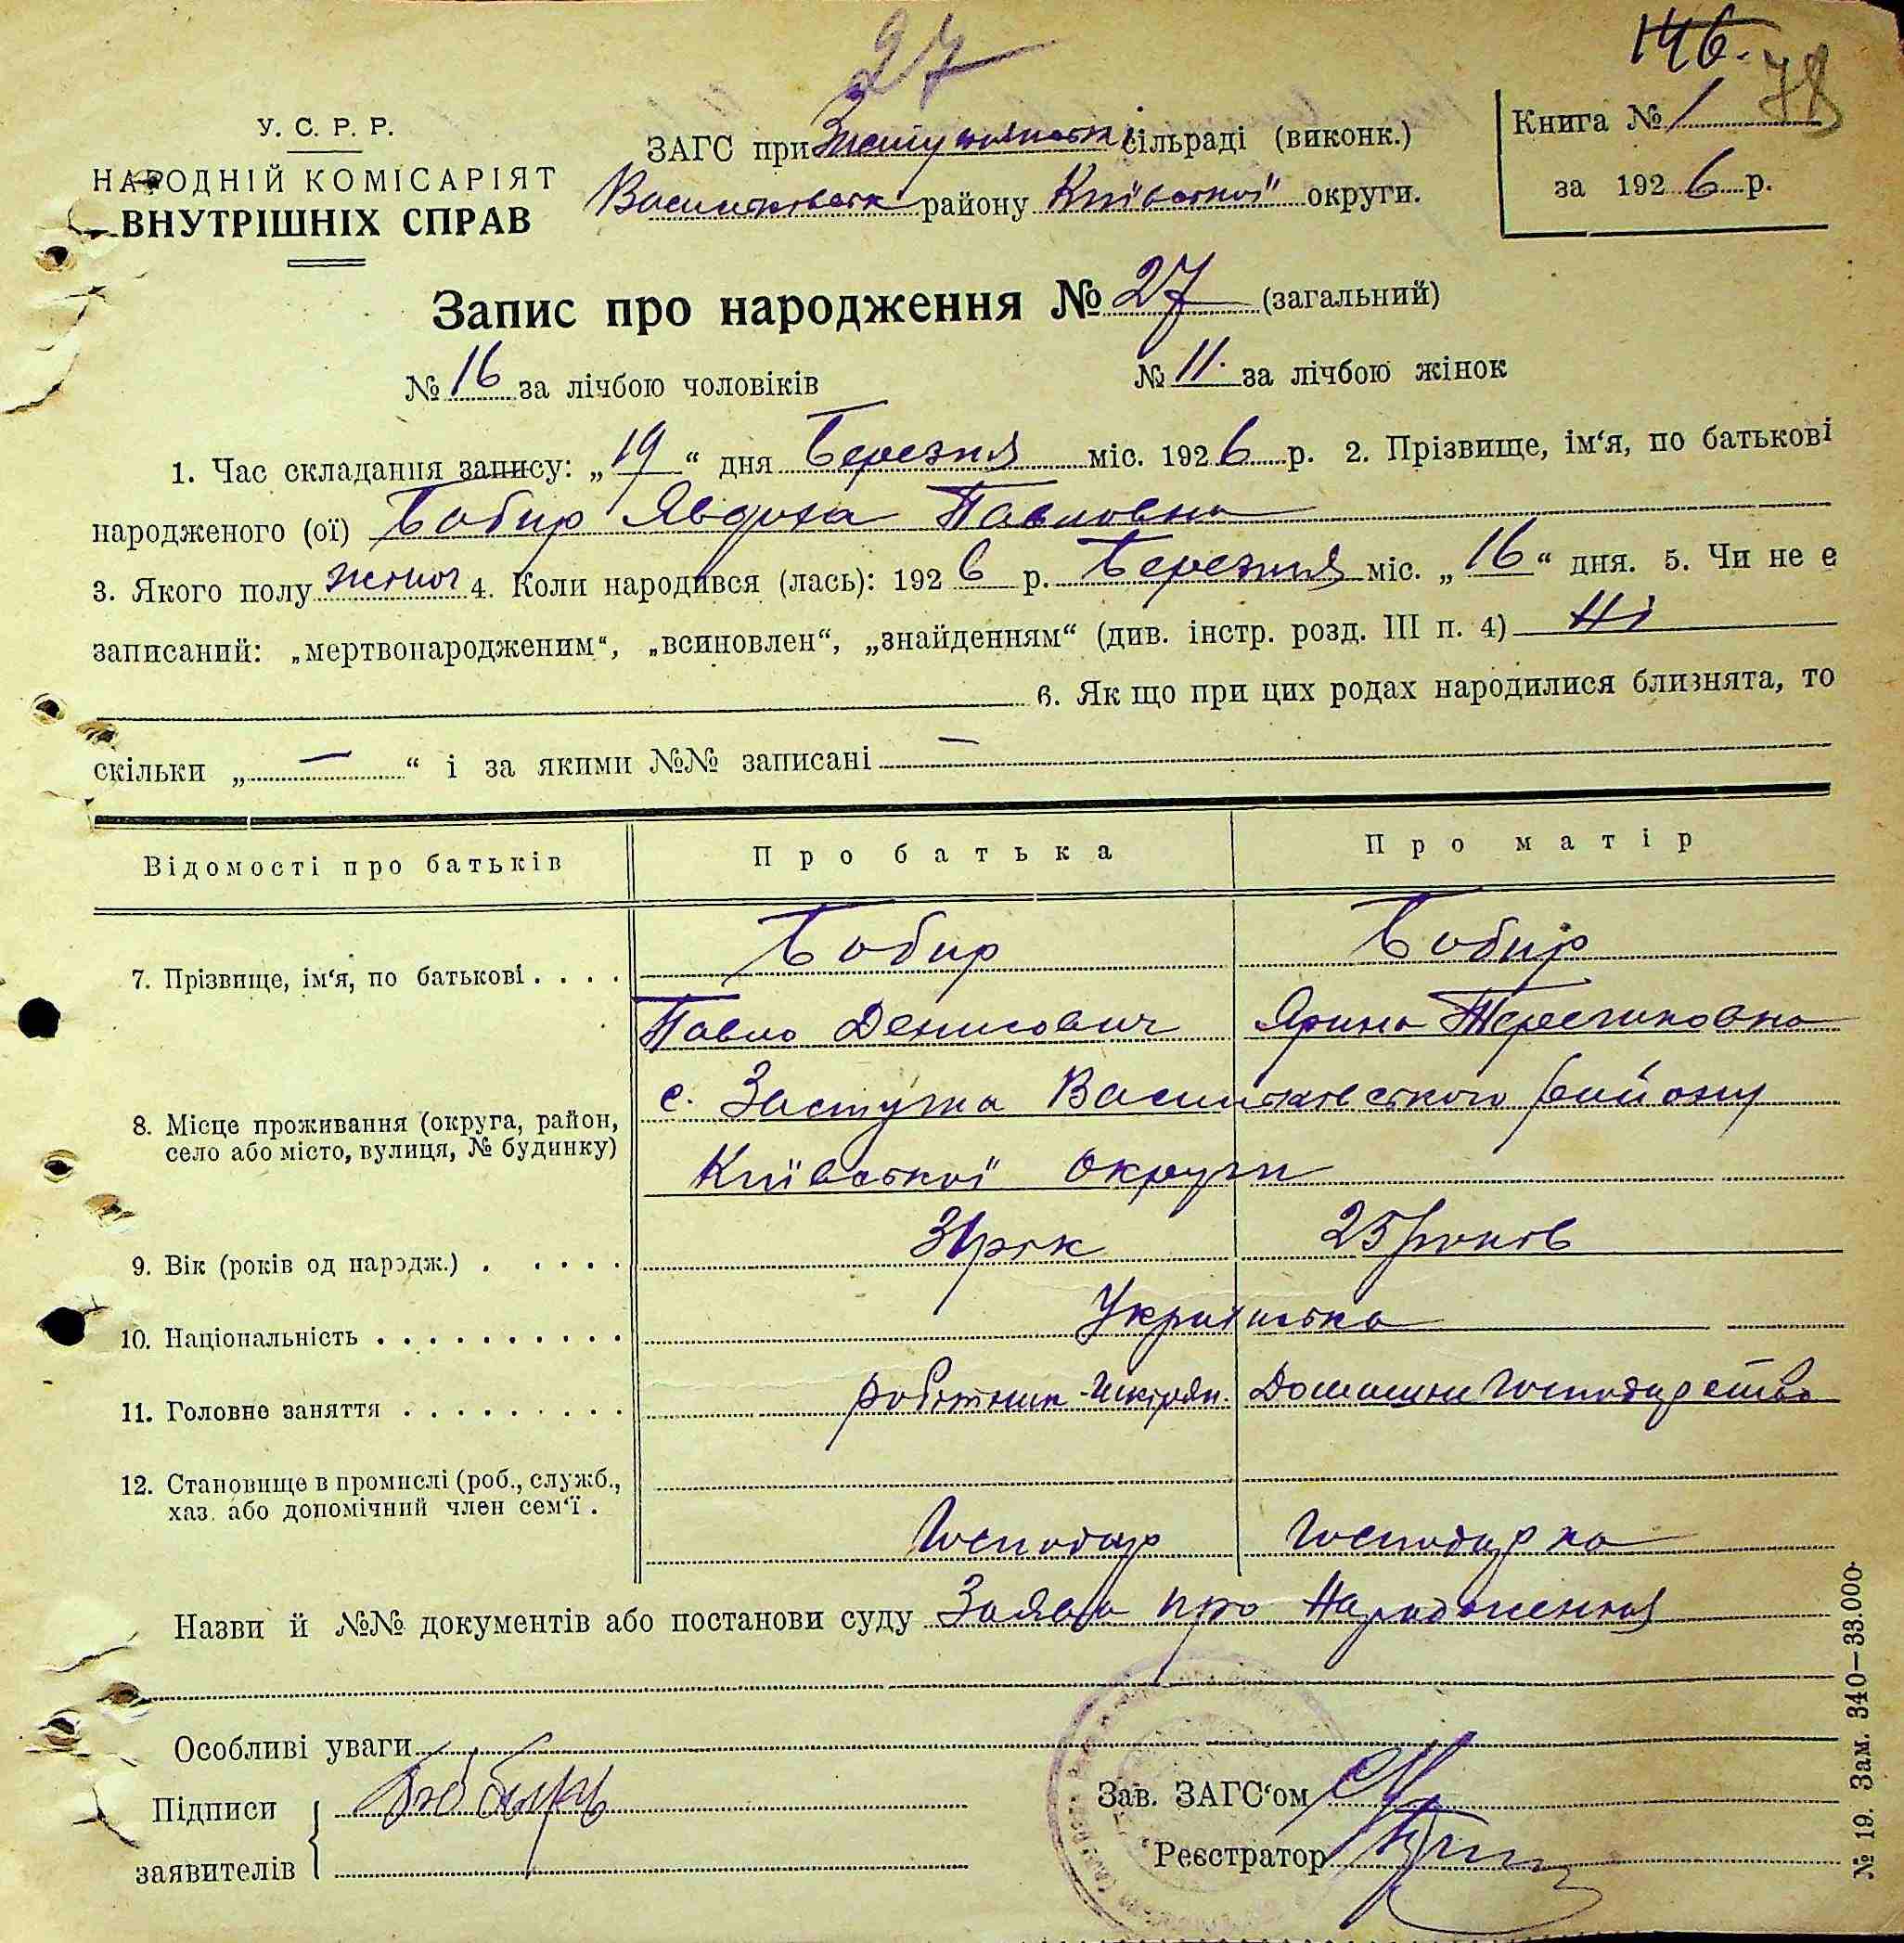 27
146. 78
У. С. Р. Р.
НАРОДНІЙ КОМІСАРІЯТ
ВНУТРІШНІХ СПРАВ
ЗАГС при сільраді (виконк.)
Васильківськ району Київської округи.
Книга № 1
за 1926 р.
Запис про народження № 27 (загальний)
№ 16 за лічбою чоловіків № 11. за лічбою жінок
1. Час складання запису: „19“ дня Березня міс. 1926 р. 2. Прізвище, ім‘я, по батькові
народженого (ої) Бобир Явдоха Павловна
3. Якого полу жіноч 4. Коли народився (лась): 1926 р. Березня міс. „16“ дня. 5. Чи не е
записаний: „мертвонародженим“, „всиновлен“, „знайденням“ (див. інстр. розд. III п. 4) Ні
6. Як що при цих родах народилися близнята, то
скільки „ — “ і за якими №№ записані —
Відомості про батьків Про батька Про матір
7. Прізвище, ім‘я, по батькові . . . . Бобир Бобир
Павло Денисович Ярина
8. Місце проживання (округа, район, село або місто, вулиця, № будинку) с. Застугна Васильківського району
Київської Округи
9. Вік (років од народж.) . . . . . 31 рік 25 років
10. Національність . . . . . . . . . . Українська
11. Головне заняття . . . . . . . . . робітник шкірян. Домашнє господарство
12. Становище в промислі (роб., служб.,
хаз. або допомічний член сем‘ї .
Господар Господарка
Назви й №№ документів або постанови суду Заява про Народження
Особливі уваги
Підписи Бобырь
заявителів
Зав. ЗАГС‘ом
Реєстратор
№ 19. Зам. 340—33.000